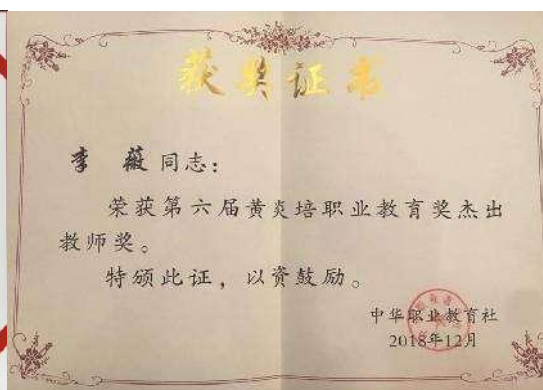 获奖证书
李 薇同志：
荣获第六届黄炎培职业教育奖杰出
教师奖。
特颁此证，以资鼓励。
中华职业教育社
2018年12月